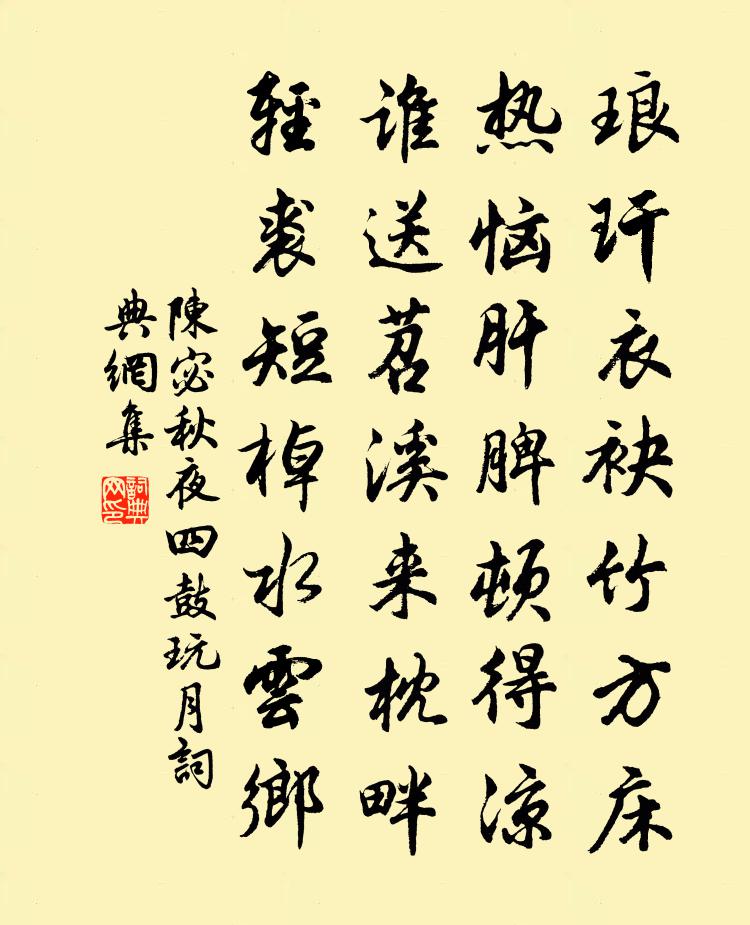 琅玕衣袂竹方床
热恼肝脾顿得凉
谁送苕溪来枕畔
輕裘短棹水雲鄉
陳宓秋夜四鼓玩月詞
典網集
詞典網印